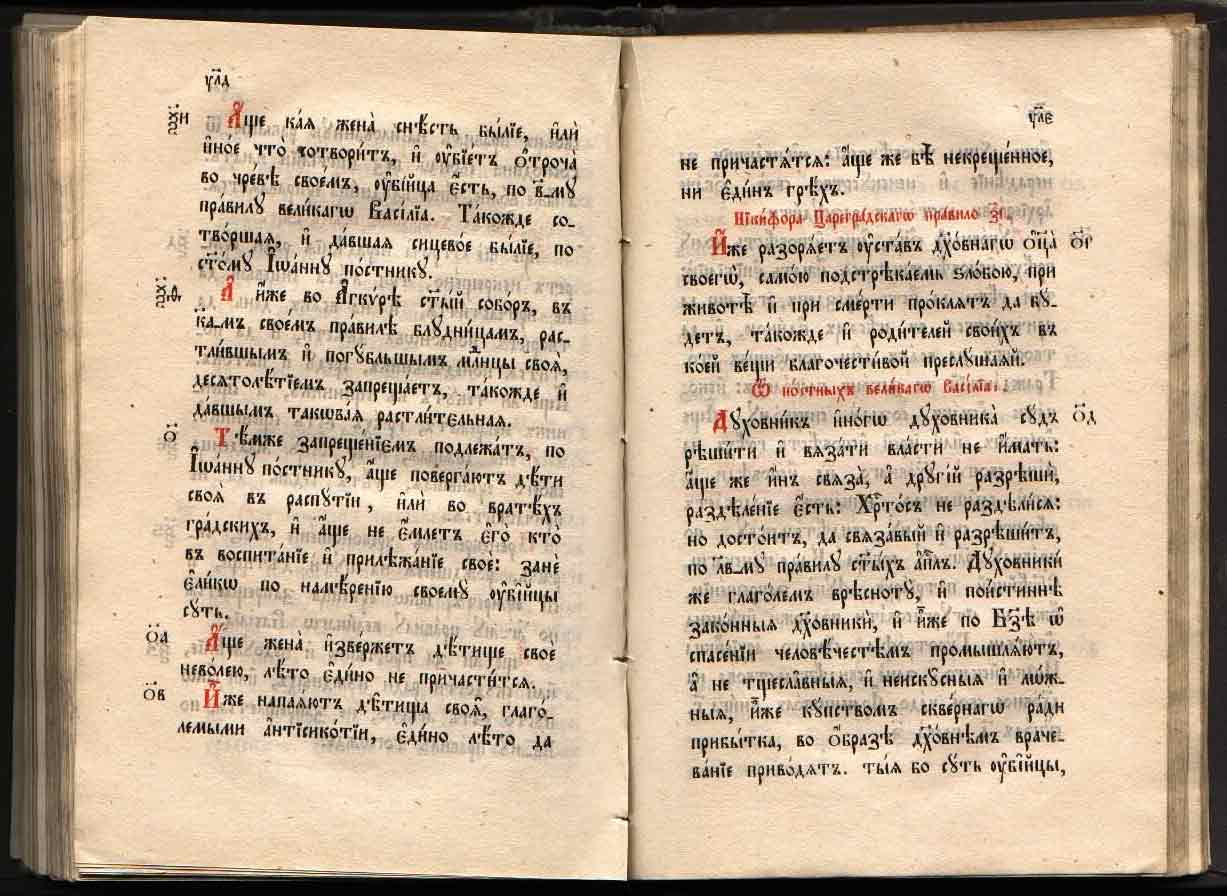 у҃лд
А҆́ще ка́ѧ жена̀ снѣ́сть бы́лїе, и҆лѝ
и҆но́е что̀ сотвори́тъ, и҆ ᲂу҆бїе́тъ ѻ҆троча̀
во чре́вѣ свое́мъ, ᲂу҆бі́йца є҆́сть, по в҃-мꙋ
пра́вилꙋ вели́кагѡ Васі́лїа. Та́кожде со-
тво́ршаѧ, и҆ да́вшаѧ сицево́е бы́лїе, по
ст҃о́мꙋ І҆ѡа́ннꙋ по́стникꙋ.
А҆ и҆́же во А҆гкѵ́рѣ ст҃ы́й собо́ръ, въ
к҃а-мъ свое́мъ пра́вилѣ блꙋдни́цамъ, рас-
тли́вшымъ и҆ погꙋ́бльшымъ млⷣнцы своѧ̑,
десѧтолѣ́тїемъ запреща́етъ, та́кожде и҆
да́вшымъ такѡва́ѧ растли́тельнаѧ.
ѻ҃
Тѣ́мже запреще́нїемъ подлежа́тъ, по
І҆ѡа́ннꙋ по́стникꙋ, а҆́ще поверга́ютъ дѣ́ти
своѧ̑ въ распꙋ́тїи, и҆лѝ во вратѣ́хъ
гра́дскихъ, и҆ а҆́ще не є҆́млетъ є҆го̀ кто̀
въ воспита́нїе и҆ прилѣжа́нїе свое: занѐ
є҆ли́кѡ по намѣ́ренїю своемꙋ̀ ᲂу҆бі́йцы
сꙋ́ть.
ѻ҃а
А҆́ще жена̀ и҆зве́ржетъ дѣ́тище своѐ
нево́лею, лѣ́то є҆ди́но не причасти́тсѧ.
ѻ҃в
И҆̀же напаѧ́ютъ дѣ́тища своѧ̑, глаго́-
лемыми а҆нтїсико́тїи, є҆ди́но лѣ́то да
у҃ле
не причастѧ́тсѧ: а҆́ще же бѣ̀ некреще́нное,
ни є҆ди́нъ грѣ́хъ.
Нїки́фора Царегра́дскагѡ пра́вило з҃і.
И҆́же разорѧ́етъ ᲂу҆ста́въ дх҃о́внагѡ ѻ҆ц҃а̀ ѻ҃г
своегѡ̀, само́ю подстрѣка́емь ѕло́бою, при
животѣ̀ и҆ при сме́рти про́клѧтъ да бꙋ́-
детъ, та́кожде и҆ роди́телей свои́хъ въ
ко́ей ве́щи благочести́вой преслꙋ́шаѧй.
Ѿ по́стныхъ вели́кагѡ Васі́лїа:
Дꙋхо́вникъ и҆но́гѡ дꙋхо́вника сꙋ́дъ ѻ҃д
рѣши́ти и҆ вѧза́ти вла́сти не и҆́мать:
а҆́ще же и҆́нъ свѧза̀, а҆ дрꙋгі́й разрѣшѝ,
раздѣле́нїе є҆́сть: Хрⷭ҇то́съ не раздѣли́сѧ:
но досто́итъ, да свѧза́вый и҆ разрѣши́тъ,
по л҃в-мꙋ пра́вилꙋ ст҃ы́хъ а҆пⷭ҇лъ. Дꙋхо́вники
же глаго́лемъ врѣ́снотꙋ, и҆ пои́стиннѣ
зако́нныѧ дх҃о́вники, и҆ и҆̀же по Бз҃ѣ ѡ҆
спасе́нїи человѣ́честѣмъ промышлѧ́ютъ,
а҆ не тщесла́вныѧ, и҆ неискꙋ́сныѧ и҆ мꙋ́ж-
ныѧ, и҆̀же кꙋ́пствомъ скве́рнагѡ ра́ди
прибы́тка, во ѻ҆́бразѣ дх҃о́внѣмъ враче-
ва́нїе приво́дѧтъ. ті́ѧ бо сꙋ́ть ᲂу҆бі́йцы,